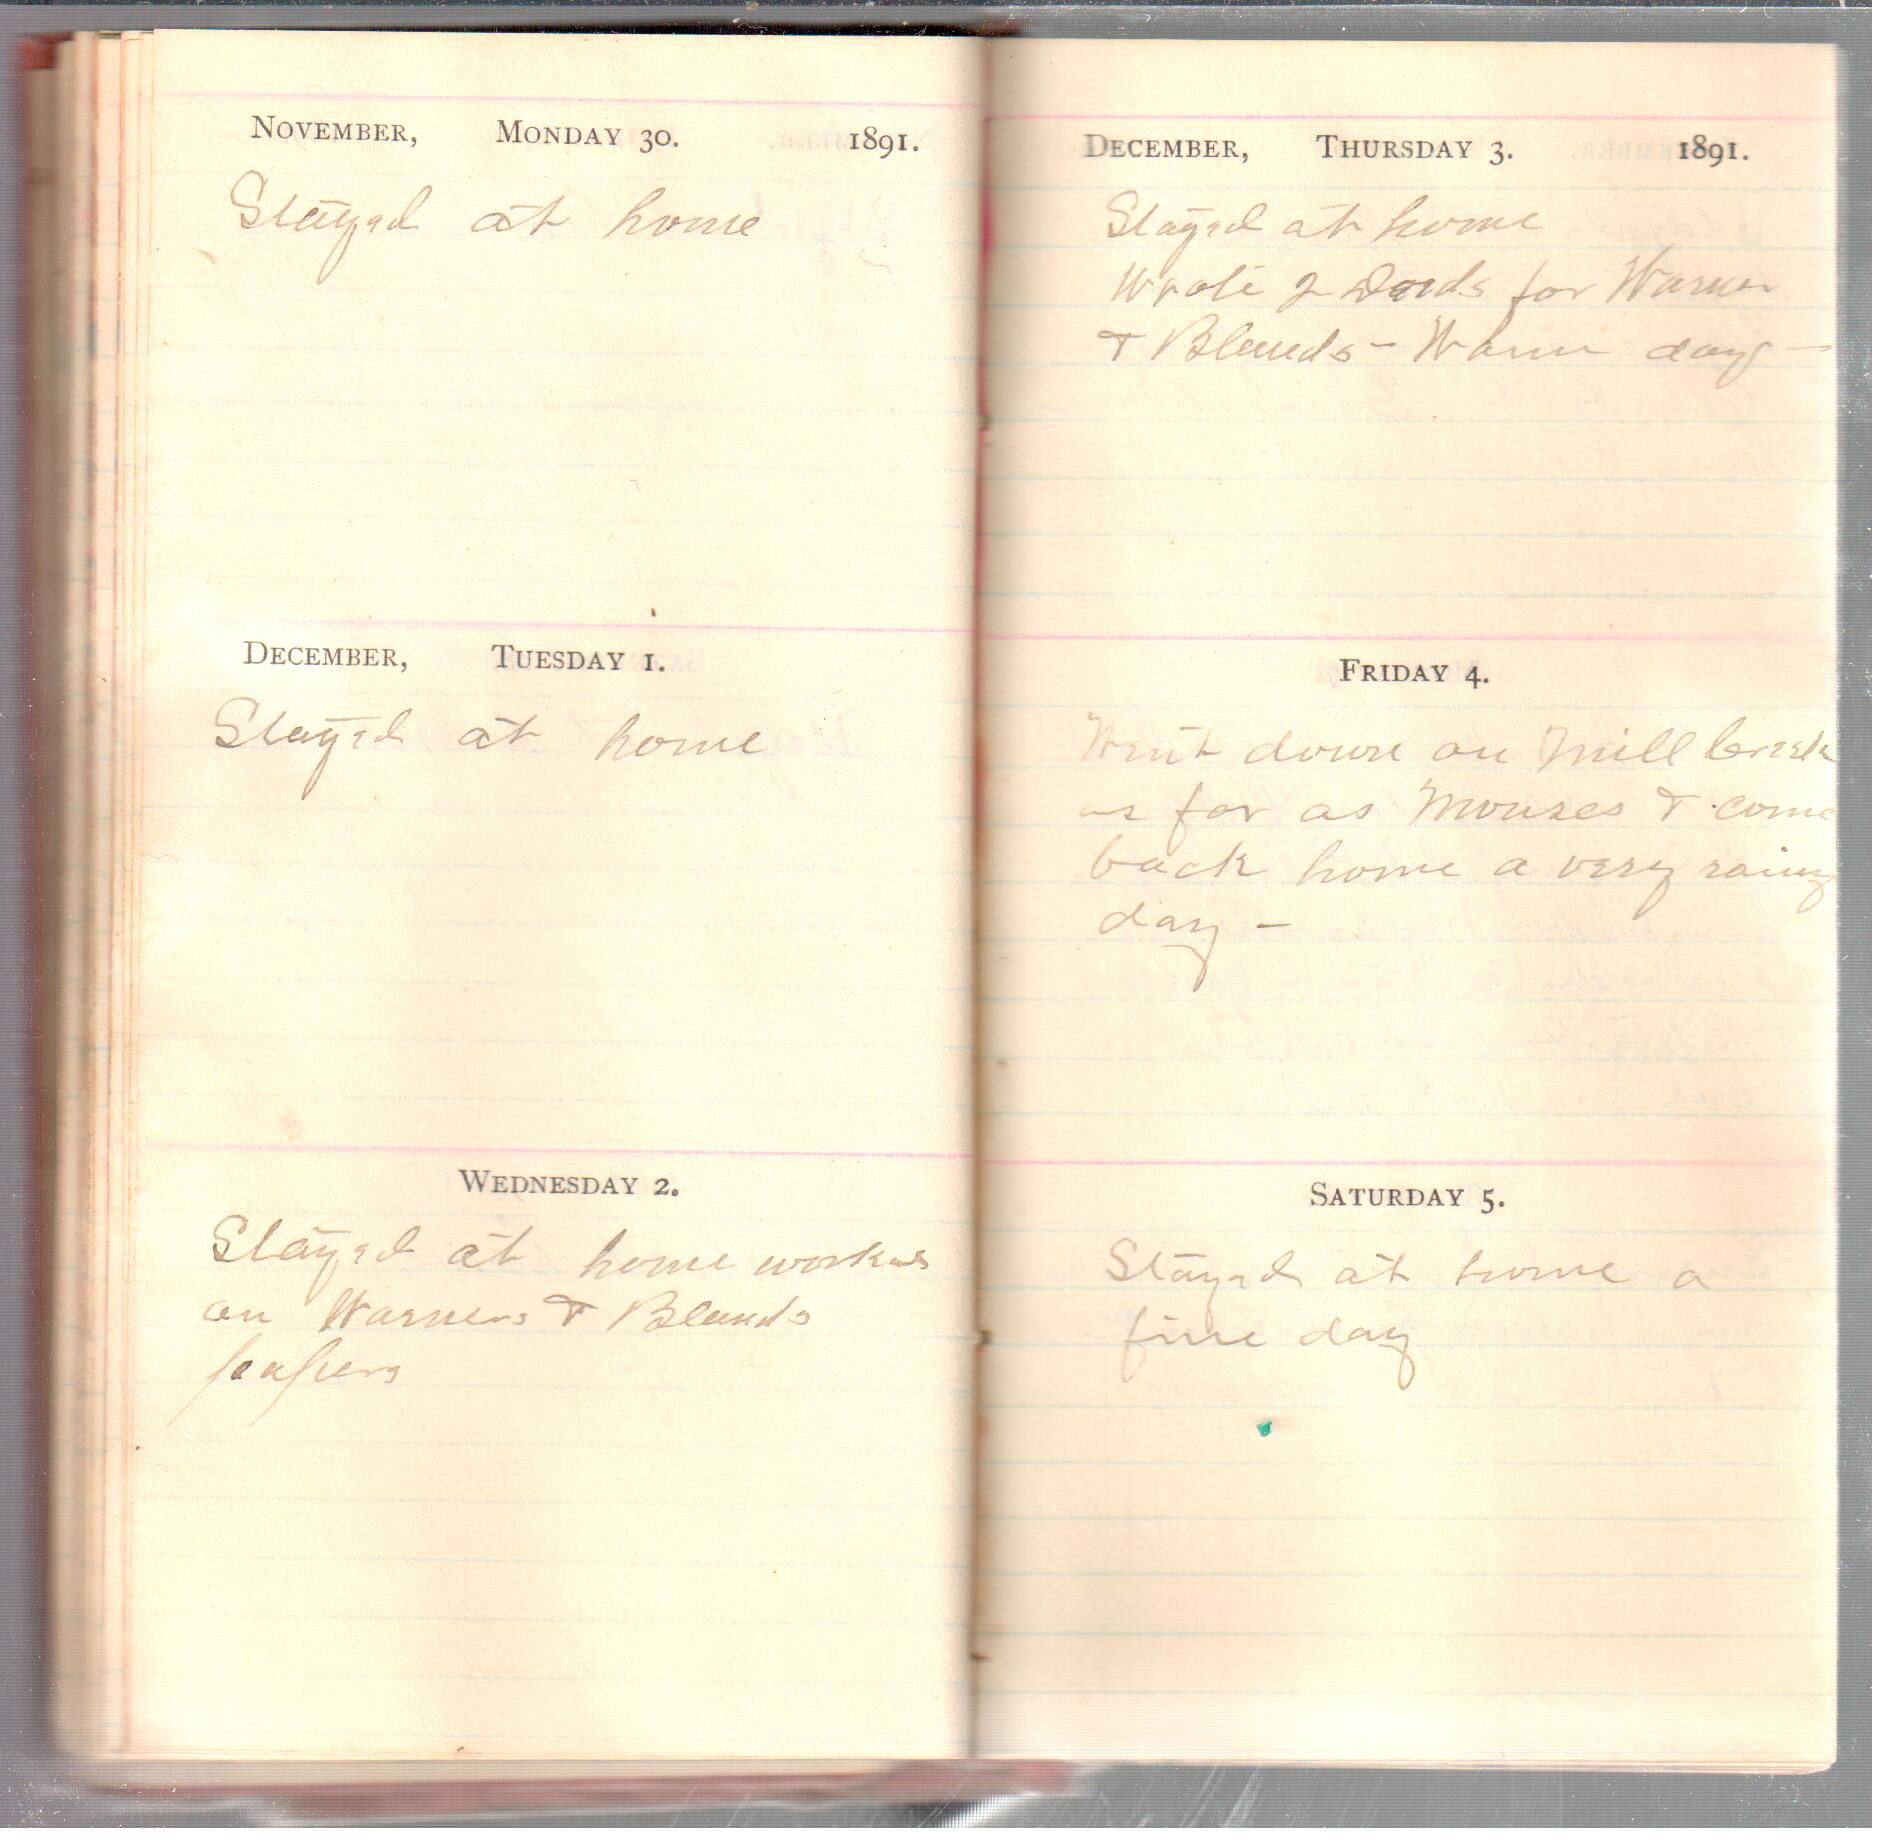 NOVEMBER, MONDAY 30. 1891.
Stayed at home
DECEMBER, TUESDAY 1.
Stayed at home
WEDNESDAY 2.
Stayed at home
on Warners & Blands
papers
DECEMBER, THURSDAY 3. 1891.
Stayed at home
Wrote 2 Deeds for Warner
& Blands - Warm day -
FRIDAY 4.
Went down on Mill Creek
as far as & come
back home a very rainy
day -
SATURDAY 5.
Stayed at home a
fine day